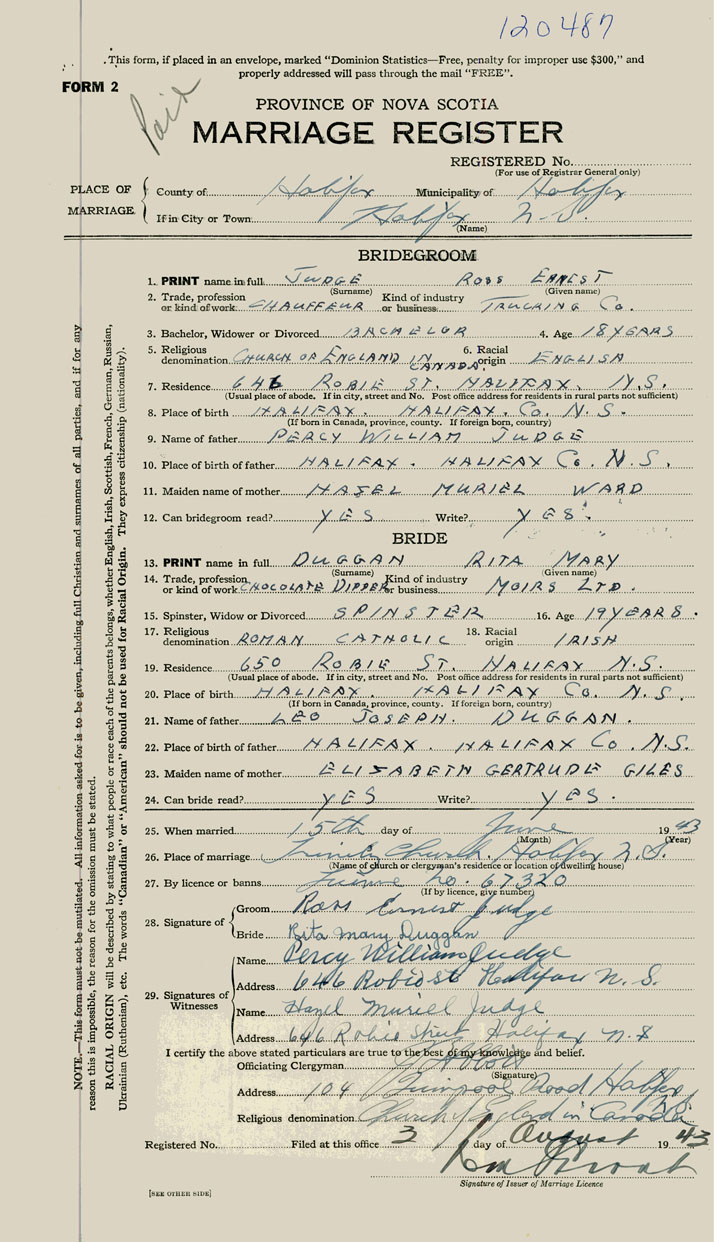 120487
This form, if placed in an envelope, marked "Dominion Statistics—Free, penalty for improper use $300," and
properly addressed will pass through the mail "FREE".
FORM 2
Paid
PROVINCE OF NOVA SCOTIA
MARRIAGE REGISTER
REGISTERED No.
(For use of Registrar General only)
PLACE OF MARRIAGE
County of Halifax Municipality of Halifax
If in City or Town Halifax N.S.
(Name)
BRIDEGROOM
1. PRINT name in full JUDGE ROSS ERNEST
(Surname) (Given name)
2. Trade, profession or kind of work CHAUFFEUR Kind of industry or business TRUCKING Co.
3. Bachelor, Widower or Divorced BACHELOR 4. Age 18 YEARS
5. Religious denomination CHURCH OF ENGLAND IN CANADA. 6. Racial origin ENGLISH
7. Residence 646 ROBIE ST. HALIFAX, N.S.
(Usual place of abode. If in city, street and No. Post office address for residents in rural parts not sufficient)
8. Place of birth HALIFAX. HALIFAX. Co. N.S.
(If born in Canada, province, county. If foreign born, country)
9. Name of father PERCY WILLIAM JUDGE
10. Place of birth of father HALIFAX. HALIFAX Co. N.S.
11. Maiden name of mother HAZEL MURIEL WARD
12. Can bridegroom read? YES Write? YES.
BRIDE
13. PRINT name in full DUGGAN RITA MARY
(Surname) (Given name)
14. Trade, profession, or kind of work CHOCOLATE DIPPER Kind of industry or business MOIRS LTD.
15. Spinster, Widow or Divorced SPINSTER 16. Age 19 YEARS.
17. Religious denomination ROMAN CATHOLIC 18. Racial origin IRISH
19. Residence 650 ROBIE ST. HALIFAX N.S.
(Usual place of abode. If in city, street and No. Post office address for residents in rural parts not sufficient)
20. Place of birth HALIFAX. HALIFAX Co. N.S.
(If born in Canada, province, county. If foreign born, country)
21. Name of father LEO JOSEPH. DUGGAN.
22. Place of birth of father HALIFAX. HALIFAX Co. N.S.
23. Maiden name of mother ELIZABETH GERTRUDE GILES
24. Can bride read? YES Write? YES.
25. When married 15th day of June 1943
(Month) (Year)
26. Place of marriage Trinity Church. Halifax N.S.
(Name of church or clergyman's residence or location of dwelling house)
27. By licence or banns No. 67320
(If by licence, give number)
28. Signature of
Groom Ross Ernest Judge
Bride Rita Mary Duggan
29. Signatures of Witnesses
Name Percy William Judge
Address 646 Robie St Halifax N.S.
Name Hazel Muriel Judge
Address 646 Robie Street Halifax N.S
I certify the above stated particulars are true to the best of my knowledge and belief.
Officiating Clergyman
(Signature)
Address 104 Road Halifax
Religious denomination Church of England in Canada
Registered No. Filed at this office 3 day of August 1943
Signature of Issuer of Marriage Licence
[SEE OTHER SIDE]
NOTE.—This form must not be mutilated. All information asked for is to be given, including full Christian and surnames of all parties, and if for any
reason this is impossible, the reason for the omission must be stated.
RACIAL ORIGIN will be described by stating to what people or race each of the parents belongs, whether English, Irish, Scottish, French, German, Russian,
Ukrainian (Ruthenian), etc. The words "Canadian" or "American" should not be used for Racial Origin. They express citizenship (nationality).